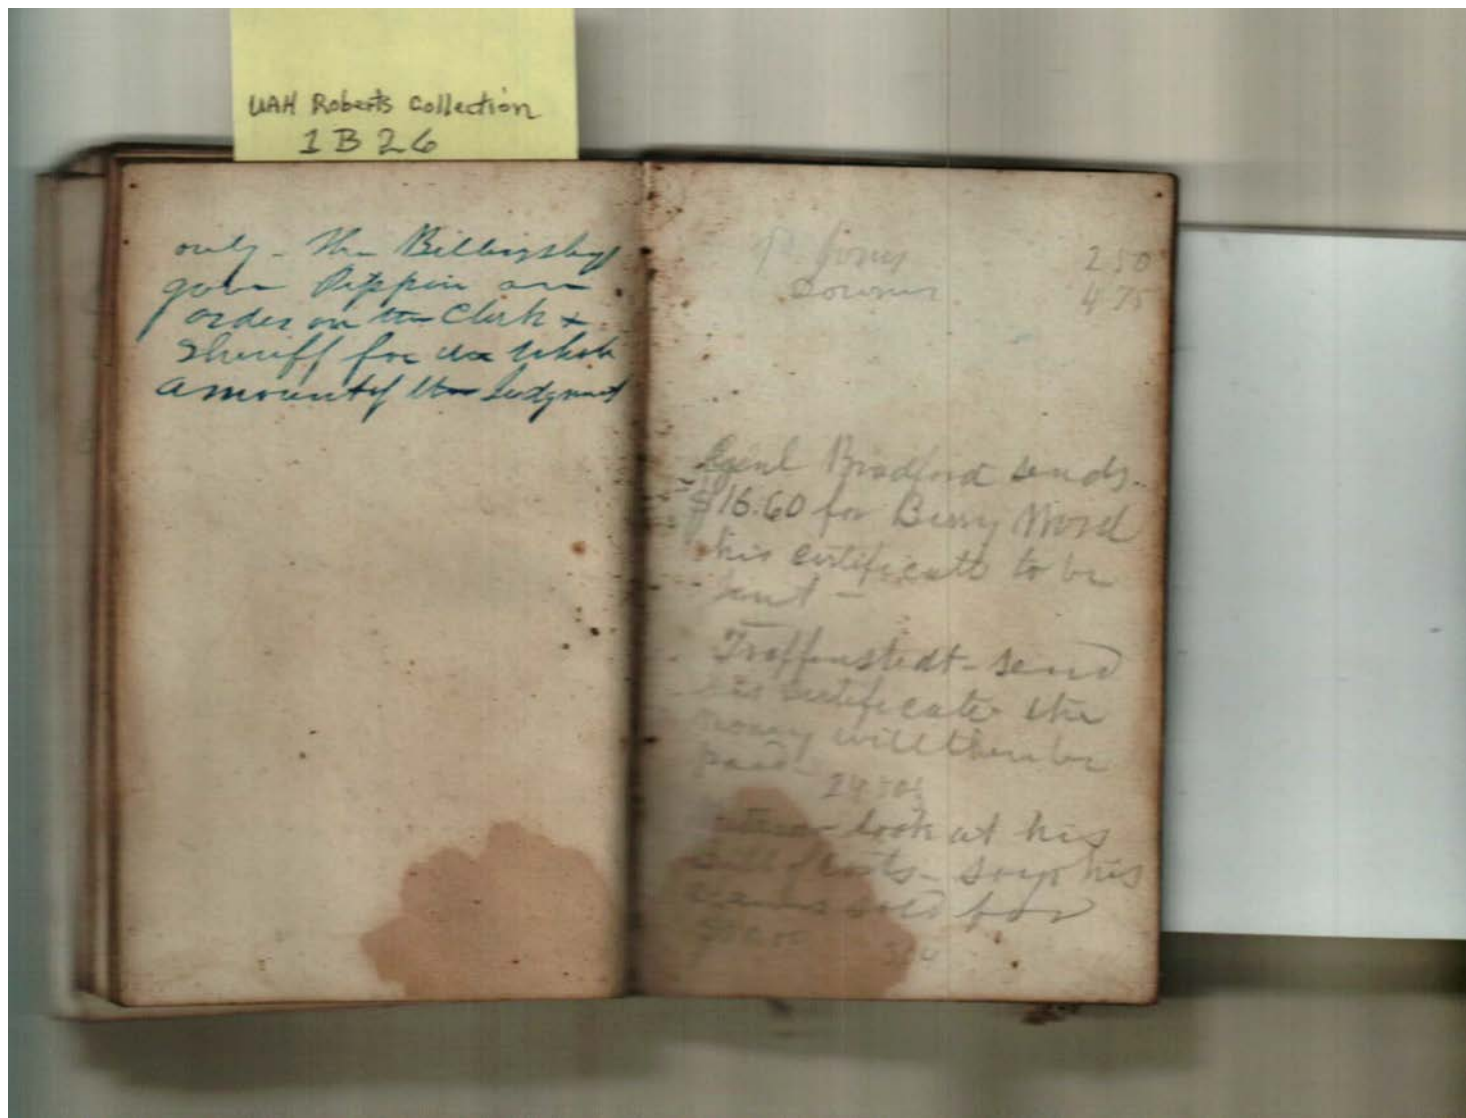 UAH Roberts Collection
1B26
only - the Billingsley
gave Pippin an
order on the Clerk &
Sheriff for the whole
amount of the Judgment
Jones 2 50
4 75
Genl Bradford sends
$16.60 for Berry Word
his certificate to be
sent -
Troffenstedt - send
his certificate the
money will then be
paid -
look at his
bill of costs - says his
sold for